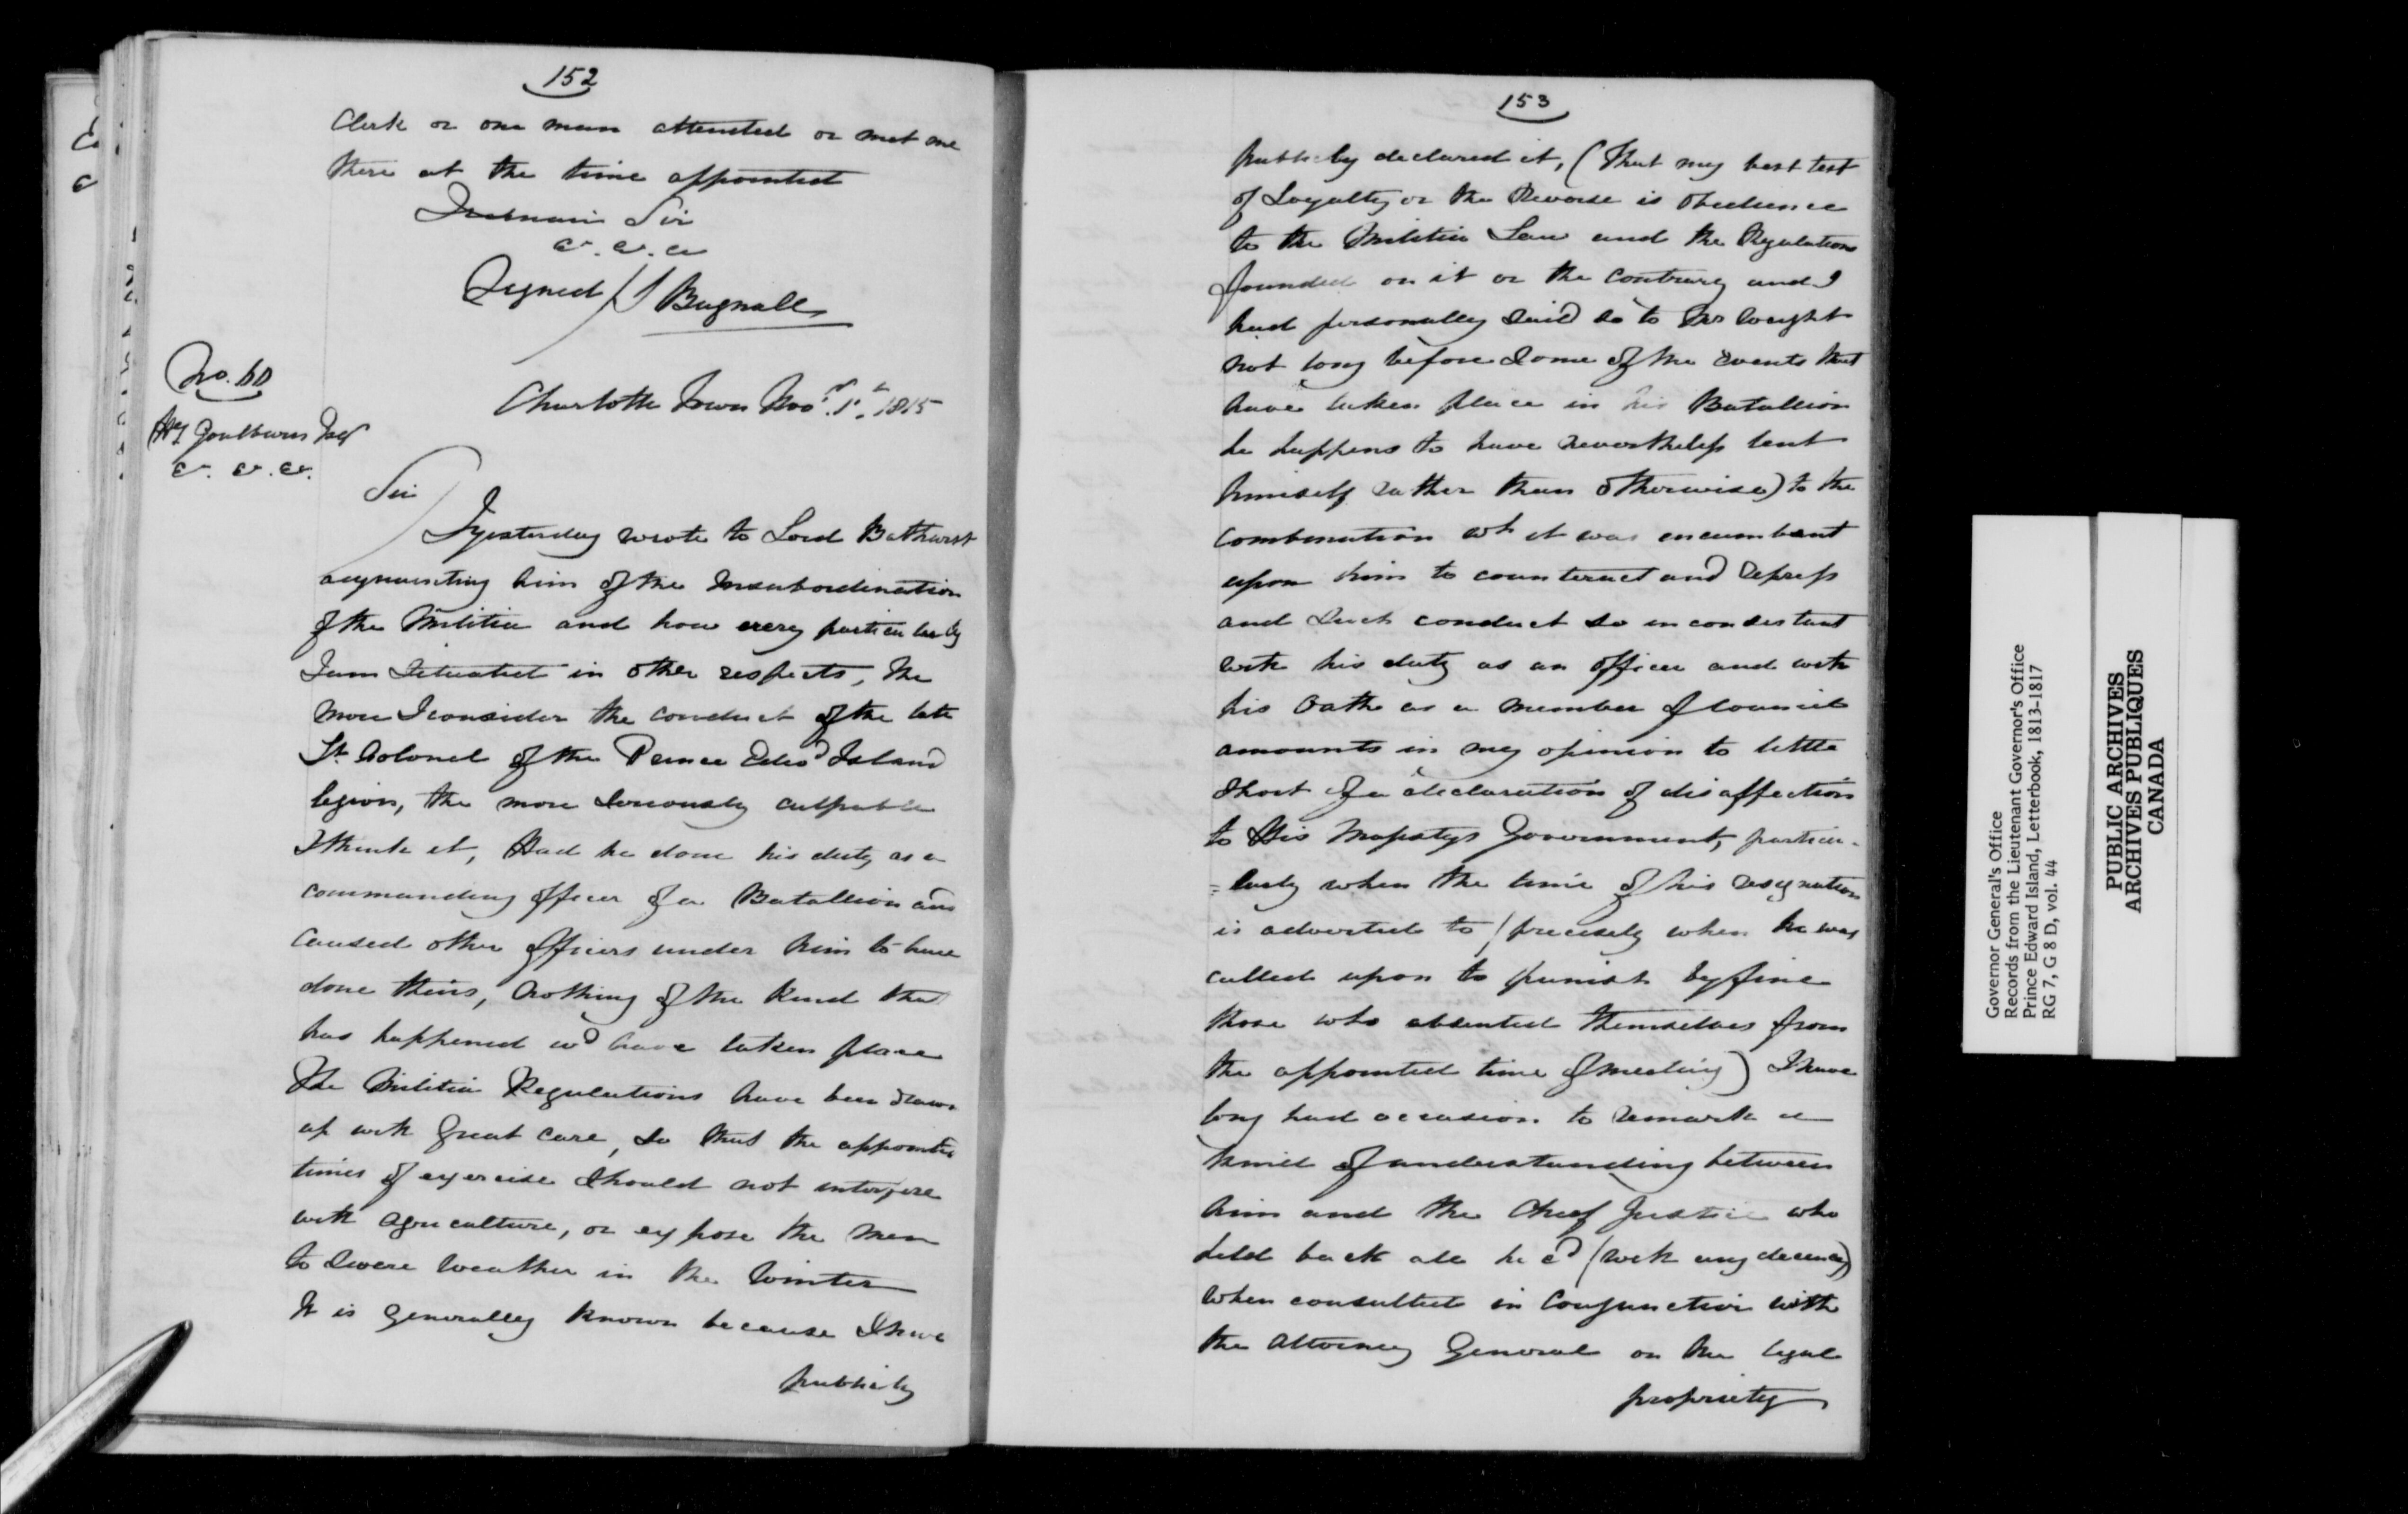 152
Clerk or one man attended or met me
there at the time appointed
I remain Sir
&. &. &
Signed / J Bagnall
No. 60
Charlotte Town Nov.r 1.t 1815
Hy Goulburn Esqr
&. &. &.
Sir
I yesterday wrote to Lord Bathurst
acquainting him of the Insubordination
of the Militia and how very particularly
I am Situated in other respects, the
more I consider the conduct of the late
Lt. Colonel of the Prince Edwd Island
legion, the more Seriously culpable
I think it, Had he done his duty as a
commanding officer of a Batallion and
caused other officers under him to have
done theirs, nothing of the kind that
has happened wd have taken place
The Militia Regulations have been drawn
up with great care, So that the appointed
times of exercise Should not interfere
with agriculture, or expose the men
to Severe Weather in the Winter
It is generally known because I have
publicly
153
publicly declared it, (That my best test
of Loyalty or the Reverse is obedience
to the Militia Law and the Regulations
founded on it or the contrary and I
had personally Said So to Mr Wright
not long before Some of the events that
have taken place in his Batallion
he happens to have nevertheless lent
himself rather than otherwise) to the
combination wh it was encumbent
upon him to counteract and repress
and Such conduct So inconsistant
with his duty as an officer and with
his Oath as a member of Council
amounts in my opinion to little
Short of a declaration of disaffection
to His Majestys Government, particu-
=larly when the time of his resignation
is adverted to (precisely when he was
called upon to punish by fine
those who absented themselves from
the appointed time of meeting) I have
long had occasion to remark a
kind of understanding between
him and the Chief Justice who
held back all he cd (with any decency)
when consulted in Conjunction with
the Attorney General on the legal
propriety
Governor General's Office
Records from the Lieutenant Governor's Office
Prince Edward Island, Letterbook, 1813-1817
RG 7, G 8 D, vol. 44
PUBLIC ARCHIVES
ARCHIVES PUBLIQUES
CANADA